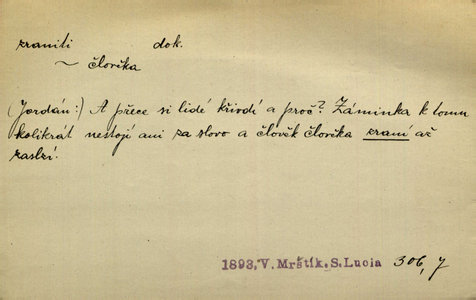 zraniti dok.
~ člověka
(Jordán:) A přece si lidé křivdí a proč? Záminka k tomu
kolikrát nestojí ani za slovo a člověk člověka zraní až
zaslzí.
1893, V. Mrštík, S. Lucia 306, 7